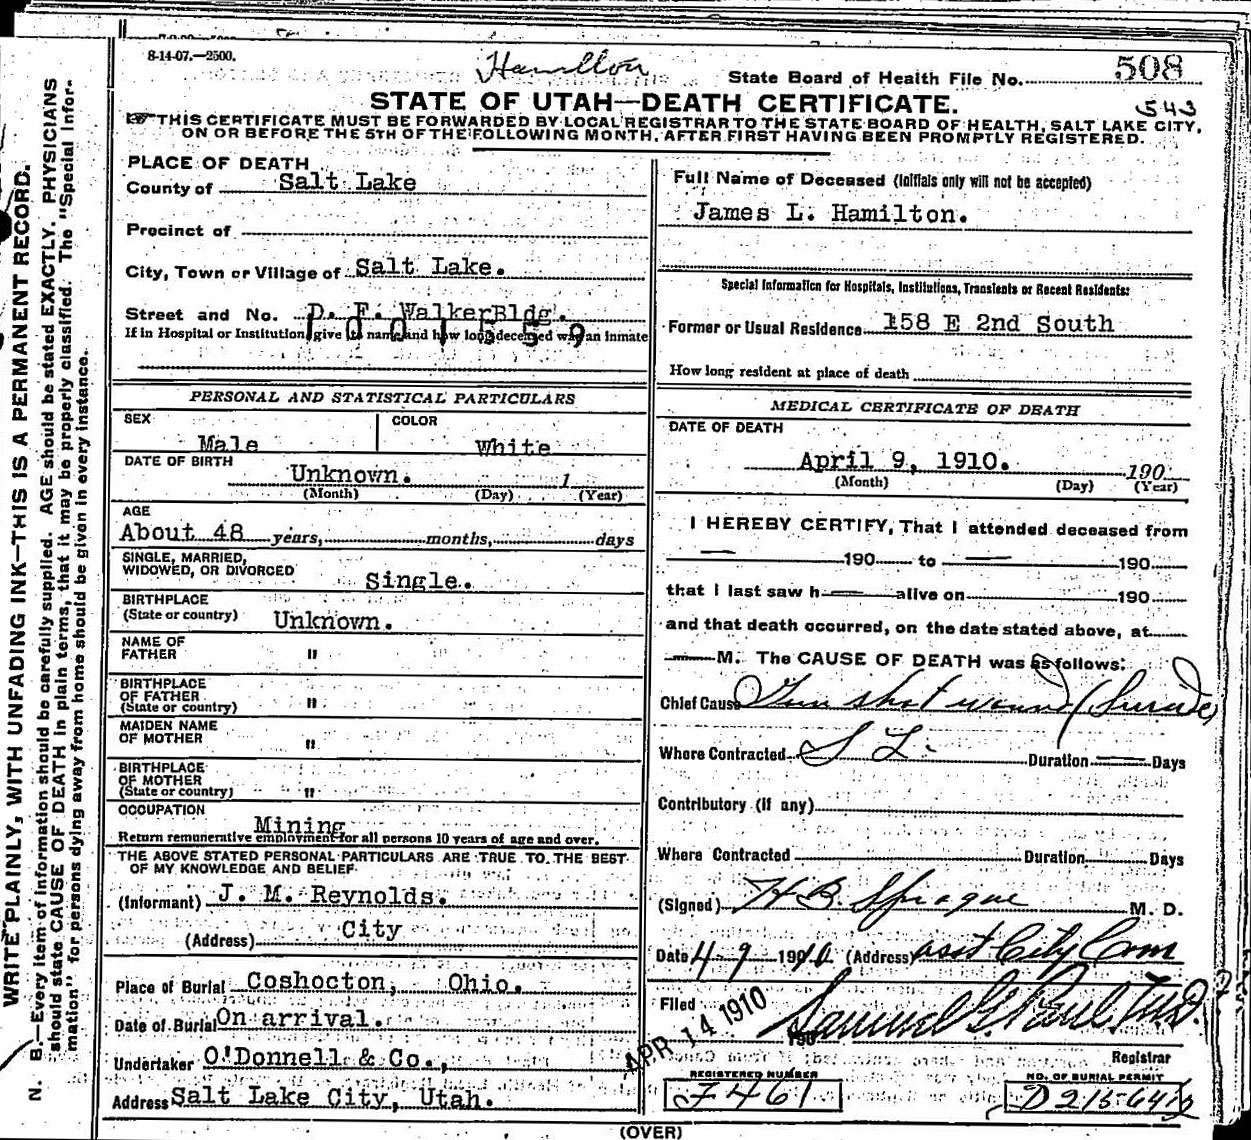 8-14-07.—2500.
Hamilton
State Board of Health File No. 508
543
STATE OF UTAH—DEATH CERTIFICATE.
THIS CERTIFICATE MUST BE FORWARDED BY LOCAL REGISTRAR TO THE STATE BOARD OF HEALTH, SALT LAKE CITY,
ON OR BEFORE THE 5TH OF THE FOLLOWING MONTH, AFTER FIRST HAVING BEEN PROMPTLY REGISTERED.
WRITE PLAINLY, WITH UNFADING INK—THIS IS A PERMANENT RECORD.
N. B.—Every item of information should be carefully supplied. AGE should be stated EXACTLY. PHYSICIANS
should state CAUSE OF DEATH in plain terms, that it may be properly classified. The "Special Infor-
mation" for persons dying away from home should be given in every instance.
PLACE OF DEATH
County of Salt Lake
Precinct of
City, Town or Village of Salt Lake.
Street and No. D. F. Walker Bldg.
If in Hospital or Institution, give its name and how long deceased was an inmate
1001559
PERSONAL AND STATISTICAL PARTICULARS
SEX Male
COLOR White
DATE OF BIRTH Unknown. 1
(Month) (Day) (Year)
AGE
About 48 years, months, days
SINGLE, MARRIED,
WIDOWED, OR DIVORCED Single.
BIRTHPLACE
(State or country) Unknown.
NAME OF
FATHER "
BIRTHPLACE
OF FATHER
(State or country) "
MAIDEN NAME
OF MOTHER "
BIRTHPLACE
OF MOTHER
(State or country) "
OCCUPATION
Mining
Return remunerative employment for all persons 10 years of age and over.
THE ABOVE STATED PERSONAL PARTICULARS ARE TRUE TO THE BEST
OF MY KNOWLEDGE AND BELIEF
(Informant) J. M. Reynolds.
(Address) City
Place of Burial Coshocton, Ohio.
Date of Burial On arrival.
Undertaker O'Donnell & Co.,
Address Salt Lake City, Utah.
Full Name of Deceased (Initials only will not be accepted)
James L. Hamilton.
Special Information for Hospitals, Institutions, Transients or Recent Residents:
Former or Usual Residence 158 E 2nd South
How long resident at place of death
MEDICAL CERTIFICATE OF DEATH
DATE OF DEATH
April 9, 1910. 190
(Month) (Day) (Year)
I HEREBY CERTIFY, That I attended deceased from
— 190 to — 190
that I last saw h— alive on 190
and that death occurred, on the date stated above, at
— M. The CAUSE OF DEATH was as follows:
Chief Cause Gun shot wound (Suicide)
Where Contracted S L. Duration — Days
Contributory (If any)
Where Contracted Duration Days
(Signed) H B Sprague M. D.
Date 4-9 1910 (Address) asst City Com
Filed APR 14 1910 190 Samuel G. Paul M.D.
Registrar
REGISTERED NUMBER
F461
NO. OF BURIAL PERMIT
(OVER)